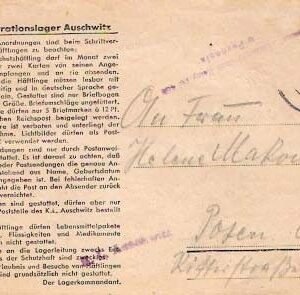 rationslager Auschwitz
nordnungen sind beim Schriftver-
Häftlingen zu beachten:
chutzhäftling darf im Monat zwei
r zwei Karten von seinen Ange-
mpfangen und an sie absenden.
e die Häftlinge müssen gut lesbar
eitig und in deutscher Sprache ge-
n. Gestattet sind nur Briefbogen
Größe. Briefumschläge ungefüttert.
dürfen nur 5 Briefmarken à 12
chen Reichspost beigelegt werden.
re ist verboten und unterliegt der
hme. Lichtbilder dürfen als Post-
t verwendet werden.
dungen sind nur durch Postanwei-
tattet. Es ist darauf zu achten, daß
oder Postsendungen die genaue An-
tehend aus Name, Geburtsdatum
ngegeben ist. Bei fehlerhaften An-
ht die Post an den Absender zurück
vernichtet.
en sind gestattet, dürfen aber nur
Poststelle des K.L. Auschwitz bestellt
äftlinge dürfen Lebensmittelpakete
Flüssigkeiten und Medikamente
nicht gestattet.
e an die Lagerleitung zwecks Ent-
der Schutzhaft sind zwecklos.
rlaubnis und Besuche von Häftlingen
nd grundsätzlich nicht gestattet.
Der Lagerkommandant.
An Frau
Helene
Posen